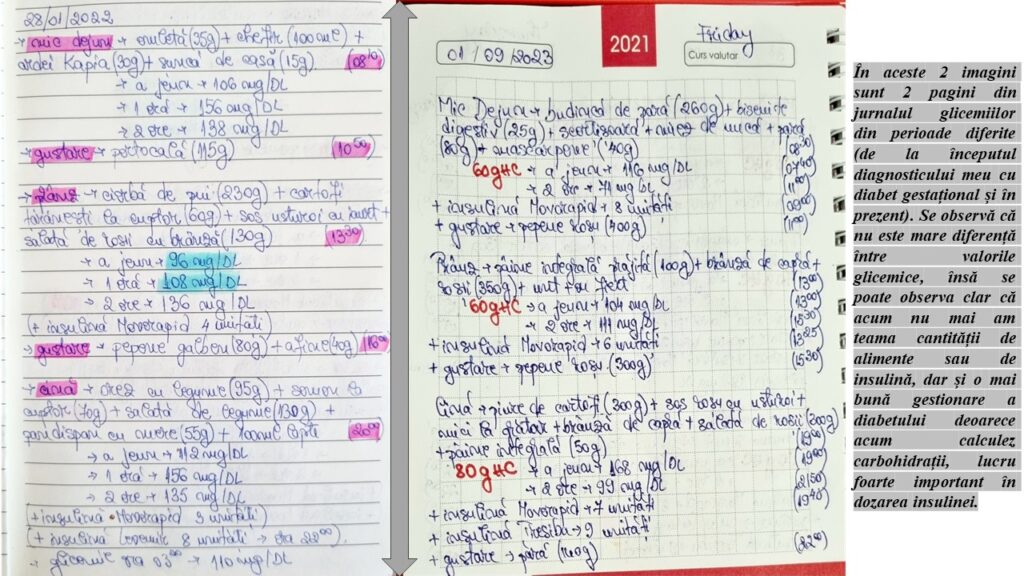 28/01/2022
→ mic dejun → omletă (35g) + chefir (100ml) +
ardei Kapia (30g) + suncă de casă (15g) (08¹⁰)
→ a jeun → 106 mg/DL
→ 1 oră → 156 mg/DL
→ 2 ore → 138 mg/DL
→ gustare → portocală (115g) (10⁵⁰)
→ prânz → ciorbă de pui (230g) + cartofi
țărănești la cuptor (60g) + sos usturoi cu iaurt +
salată de roșii cu brânză (130g) (13³⁰)
→ a jeun → 96 mg/DL
→ 1 oră → 108 mg/DL
→ 2 ore → 136 mg/DL
(+ insulină Novorapid 4 unități)
→ gustare → pepene galben (80g) + afine (40g) (16⁰⁰)
→ cină → orez cu legume (95g) + somon la
cuptor (70g) + salată de legume (130g) +
pandișpan cu mere (55g) + 100ml lapte (20⁰⁰)
→ a jeun → 112 mg/DL
→ 1 oră → 156 mg/DL
→ 2 ore → 135 mg/DL
+ insulină Novorapid 3 unități)
(+ insulină Levemir 8 unități → ora 22⁰⁰)
→ glicemie ora 03⁰⁰ → 110 mg/DL
2021
Friday
01/09/2023
Curs valutar
Mic Dejun → budincă de pară (260g) + biscuiți
digestiv (25g) + scorțișoară + miez de nucă + pară
(80g) + mascarpone (40g) (08³⁰)
60gHC → a jeun → 116 mg/DL (07⁴⁰)
→ 2 ore → 71 mg/DL (11⁰⁰)
+ insulină Novorapid → 8 unități (09⁰⁰)
+ gustare → pepene roșu (400g) (11⁰⁰)
Prânz → pâine integrală prăjită (100g) + brânză de capră +
roșii (350g) + unt (13⁰⁰)
60gHC → a jeun → 104 mg/DL (13⁰⁰)
→ 2 ore → 111 mg/DL (15³⁰)
+ insulină Novorapid → 6 unități (13²⁵)
+ gustare → pepene roșu (300g) (15³⁰)
Cină → piure de cartofi (300g) + sos roșu cu usturoi +
mici la grătar + brânză de capră + salată de roșii (200g)
+ pâine integrală (50g) (19⁰⁰)
80gHC → a jeun → 168 mg/DL (19⁰⁰)
→ 2 ore → 99 mg/DL (21⁵⁰)
+ insulină Novorapid → 7 unități (19⁴⁰)
+ insulină Tresiba → 9 unități
+ gustare → pară (140g) (22⁰⁰)
În aceste 2 imagini
sunt 2 pagini din
jurnalul glicemiilor
din perioade diferite
(de la începutul
diagnosticului meu cu
diabet gestațional și în
prezent). Se observă că
nu este mare diferență
între valorile
glicemice, însă se
poate observa clar că
acum nu mai am
teama cantității de
alimente sau de
insulină, dar și o mai
bună gestionare a
diabetului deoarece
acum calculez
carbohidrații, lucru
foarte important în
dozarea insulinei.